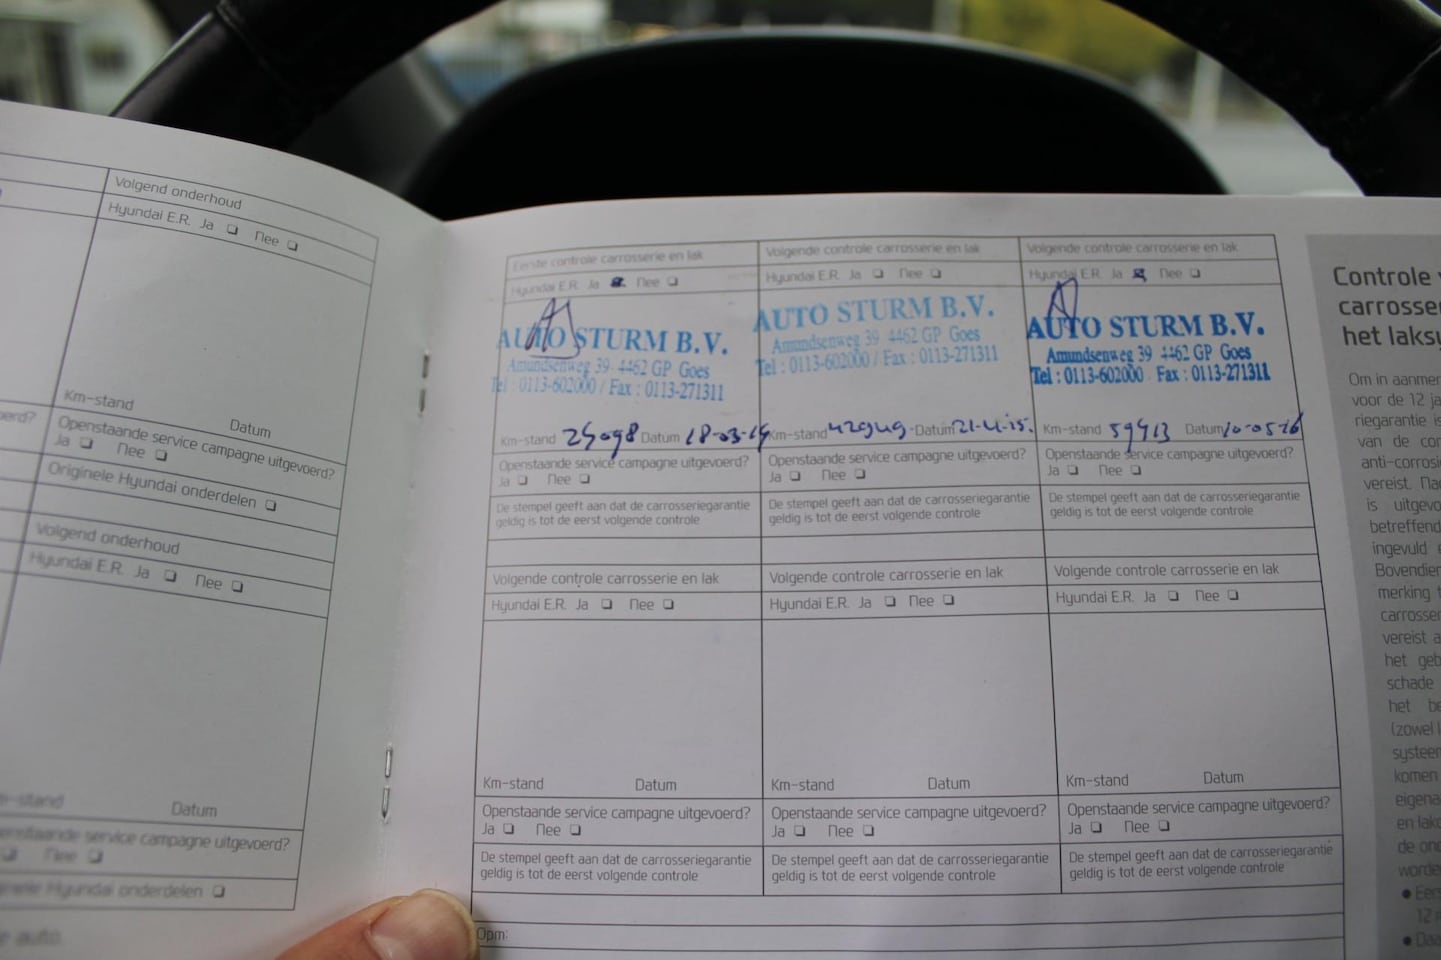 Volgend onderhoud
Hyundai E.R. Ja Nee
Km-stand Datum
Openstaande service campagne uitgevoerd?
Ja Nee
Originele Hyundai onderdelen
Volgend onderhoud
Hyundai E.R. Ja Nee
Datum
uitgevoerd?
Nee
Hyundai onderdelen
auto.
Eerste controle carrosserie en lak
Hyundai E.R. Ja Nee
AUTO STURM B.V.
Amundsenweg 39 4462 GP Goes
Tel : 0113-602000 / Fax : 0113-271311
Km-stand 25098 Datum 18-03-14
Openstaande service campagne uitgevoerd?
Ja Nee
De stempel geeft aan dat de carrosseriegarantie
geldig is tot de eerst volgende controle
Volgende controle carrosserie en lak
Hyundai E.R. Ja Nee
AUTO STURM B.V.
Amundsenweg 39 4462 GP Goes
Tel : 0113-602000 / Fax : 0113-271311
Km-stand 42949 Datum 21-4-15.
Openstaande service campagne uitgevoerd?
Ja Nee
De stempel geeft aan dat de carrosseriegarantie
geldig is tot de eerst volgende controle
Volgende controle carrosserie en lak
Hyundai E.R. Ja Nee
AUTO STURM B.V.
Amundsenweg 39 4462 GP Goes
Tel : 0113-602000 Fax : 0113-271311
Km-stand 59913 Datum 10-05-16
Openstaande service campagne uitgevoerd?
Ja Nee
De stempel geeft aan dat de carrosseriegarantie
geldig is tot de eerst volgende controle
Volgende controle carrosserie en lak
Hyundai E.R. Ja Nee
Km-stand Datum
Openstaande service campagne uitgevoerd?
Ja Nee
De stempel geeft aan dat de carrosseriegarantie
geldig is tot de eerst volgende controle
Volgende controle carrosserie en lak
Hyundai E.R. Ja Nee
Km-stand Datum
Openstaande service campagne uitgevoerd?
Ja Nee
De stempel geeft aan dat de carrosseriegarantie
geldig is tot de eerst volgende controle
Volgende controle carrosserie en lak
Hyundai E.R. Ja Nee
Km-stand Datum
Openstaande service campagne uitgevoerd?
Ja Nee
De stempel geeft aan dat de carrosseriegarantie
geldig is tot de eerst volgende controle
Opm:
Controle
carrosser
het laksy
Om in aanmer
voor de 12 ja
riegarantie is
van de con
anti-corrosi
vereist. Na
is uitgevo
betreffend
ingevuld
Bovendien
merking
carrosser
vereist a
het geb
schade
het be
(zowel
systeem
komen
eigena
en lak
de ond
worde
• Eers
12
• Daa